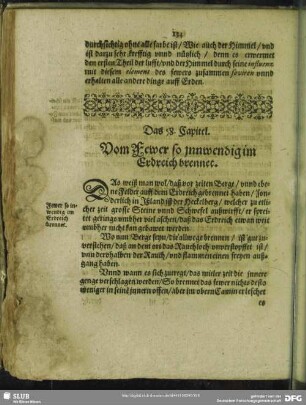 134
durchsichtig ohne alle farbe ist / Wie auch der Himmel / vnd
ist dazu sehr krefftig vnnd nützlich / denn es erwermet
den ersten Theil der lufft / vnd der Himmel durch seine influentz
mit diesem element des fewers zusammen foviren vnnd
erhalten alle andre dinge auff Erden.
Das 8. Capitel.
Vom Fewer so inwendig im
Erdreich brennet.
Das weiß man wol / daß vor zeiten Berge / vnnd ebe-
ne Felder auff dem Erdreich gebrennet haben / Son-
derlich in Ißlandt ist der Heckelberg / welcher zu etli-
cher zeit grosse Steine vnnd Schwefel außwirfft / er sprei-
tet geringß vmbher viel aschen / daß das Erdreich etwan weit
vmbher nicht kan gebawet werden.
Wo nun Berge seyn / die allwege brennen / ist gut zu
verstehen / daß an dem ort das Rauchloch vnverstopffet ist /
vnd derhalben der Rauch / vnd flammen einen freyen auß-
gang haben.
Vnnd wann es sich zutregt / das mitler zeit die innere
genge verschlagen werden / So brennet das fewer nichts desto
weniger in seinē jnnern offen / aber im obern Camin erleschet
es
Fewer so in-
wendig im
Erdreich
brennet.
SLUB
Wir führen Wissen.
DFG